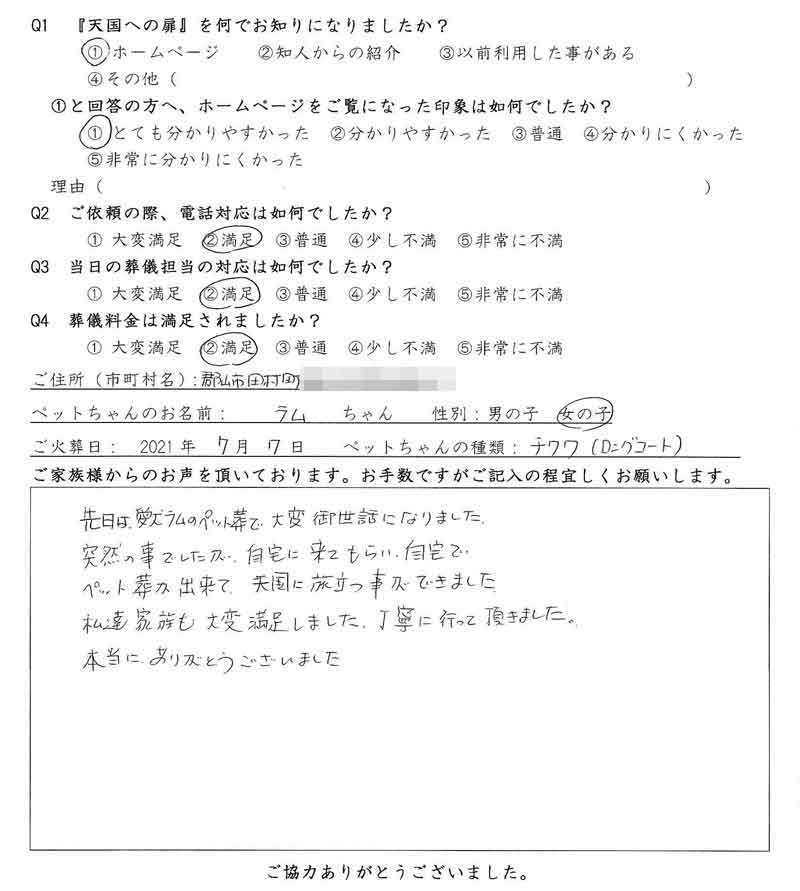 Q1 『天国への扉』を何でお知りになりましたか？
①ホームページ ②知人からの紹介 ③以前利用した事がある
④その他（ ）
①と回答の方へ、ホームページをご覧になった印象は如何でしたか？
①とても分かりやすかった ②分かりやすかった ③普通 ④分かりにくかった
⑤非常に分かりにくかった
理由（ ）
Q2 ご依頼の際、電話対応は如何でしたか？
① 大変満足 ②満足 ③普通 ④少し不満 ⑤非常に不満
Q3 当日の葬儀担当の対応は如何でしたか？
① 大変満足 ②満足 ③普通 ④少し不満 ⑤非常に不満
Q4 葬儀料金は満足されましたか？
① 大変満足 ②満足 ③普通 ④少し不満 ⑤非常に不満
ご住所（市町村名）：郡山市田村町
ペットちゃんのお名前： ラム ちゃん 性別：男の子 女の子
ご火葬日： 2021年 7月 7日 ペットちゃんの種類：チワワ（ロングコート）
ご家族様からのお声を頂いております。お手数ですがご記入の程宜しくお願いします。
先日は、愛犬ラムのペット葬で、大変御世話になりました。
突然の事でしたが、自宅に来てもらい、自宅で
ペット葬が出来て、天国に旅立つ事ができました
私達家族も大変満足しました。丁寧に行って頂きました。
本当に、ありがとうございました
ご協力ありがとうございました。